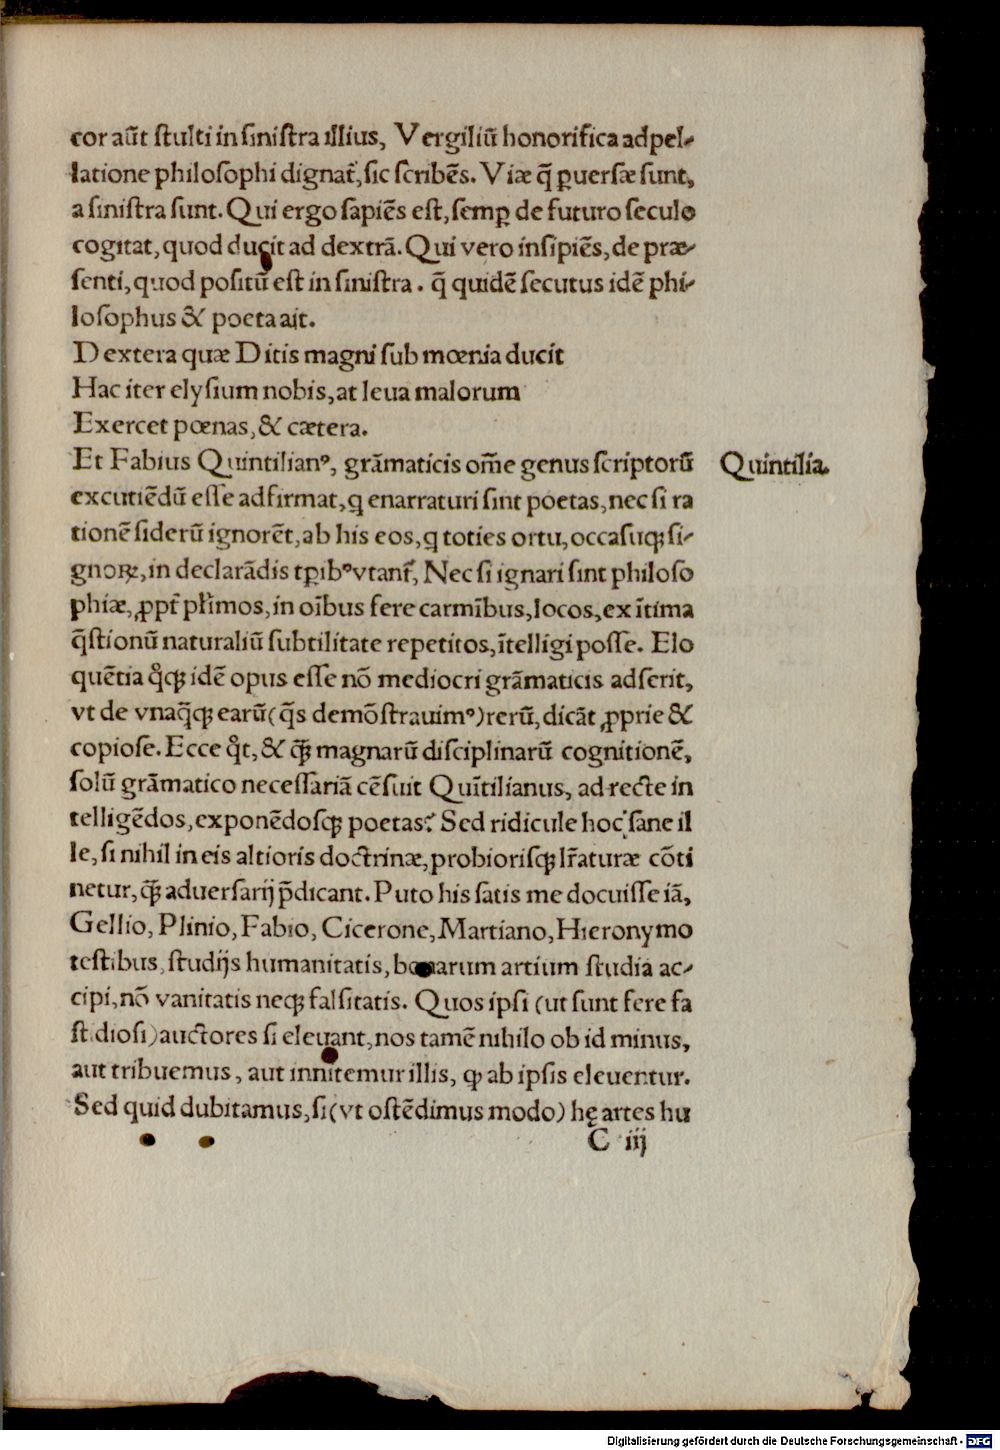 cor aūt stulti in sinistra illius, Vergiliū honorifica adpel-
latione philosophi dignat᷑, sic scribēs. Viæ q̄ ꝑuersæ sunt,
a sinistra sunt. Qui ergo sapiēs est, semꝑ de futuro seculo
cogitat, quod ducit ad dextrā. Qui vero insipiēs, de præ-
senti, quod positū est in sinistra. q̄ quidē secutus idē phi-
losophus & poeta ait.
Dextera quæ Ditis magni sub mœnia ducit
Hac iter elysium nobis, at leua malorum
Exercet pœnas, & cætera.
Et Fabius Quintilianꝰ, grāmaticis om̄e genus scriptorū
Quintilia.
excutiēdū esse adfirmat, q enarraturi sint poetas, nec si ra
tionē siderū ignorēt, ab his eos, q toties ortu, occasuqꝫ si-
gnoꝝ, in declarādis tꝑibꝰ vtant᷑, Nec si ignari sint philoso
phiæ, ꝓpt᷑ plr̄imos, in oībus fere carmībus, locos, ex ītima
q̄stionū naturaliū subtilitate repetitos, ītelligi posse. Elo
quētia qͦqꝫ idē opus esse nō mediocri grāmaticis adserit,
vt de vnaq̄qꝫ earū (q̄s demōstrauimꝰ) rerū, dicāt ꝓprie &
copiose. Ecce qͦt, & q̄ꝫ magnarū disciplinarū cognitionē,
solū grāmatico necessariā cēsuit Quītilianus, ad recte in
telligēdos, exponēdosqꝫ poetas? Sed ridicule hoc sane il
le, si nihil in eis altioris doctrinæ, probiorisqꝫ lr̄aturæ cōti
netur, q̄ꝫ aduersarij p̄dicant. Puto his satis me docuisse iā,
Gellio, Plinio, Fabio, Cicerone, Martiano, Hieronymo
testibus, studijs humanitatis, bonarum artium studia ac-
cipi, nō vanitatis neqꝫ falsitatis. Quos ipsi (ut sunt fere fa
stidiosi) auctores si eleuant, nos tamē nihilo ob id minus,
aut tribuemus, aut innitemur illis, ꝙ ab ipsis eleuentur.
Sed quid dubitamus, si (vt ostēdimus modo) hę artes hu
C iij
Digitalisierung gefördert durch die Deutsche Forschungsgemeinschaft - DFG